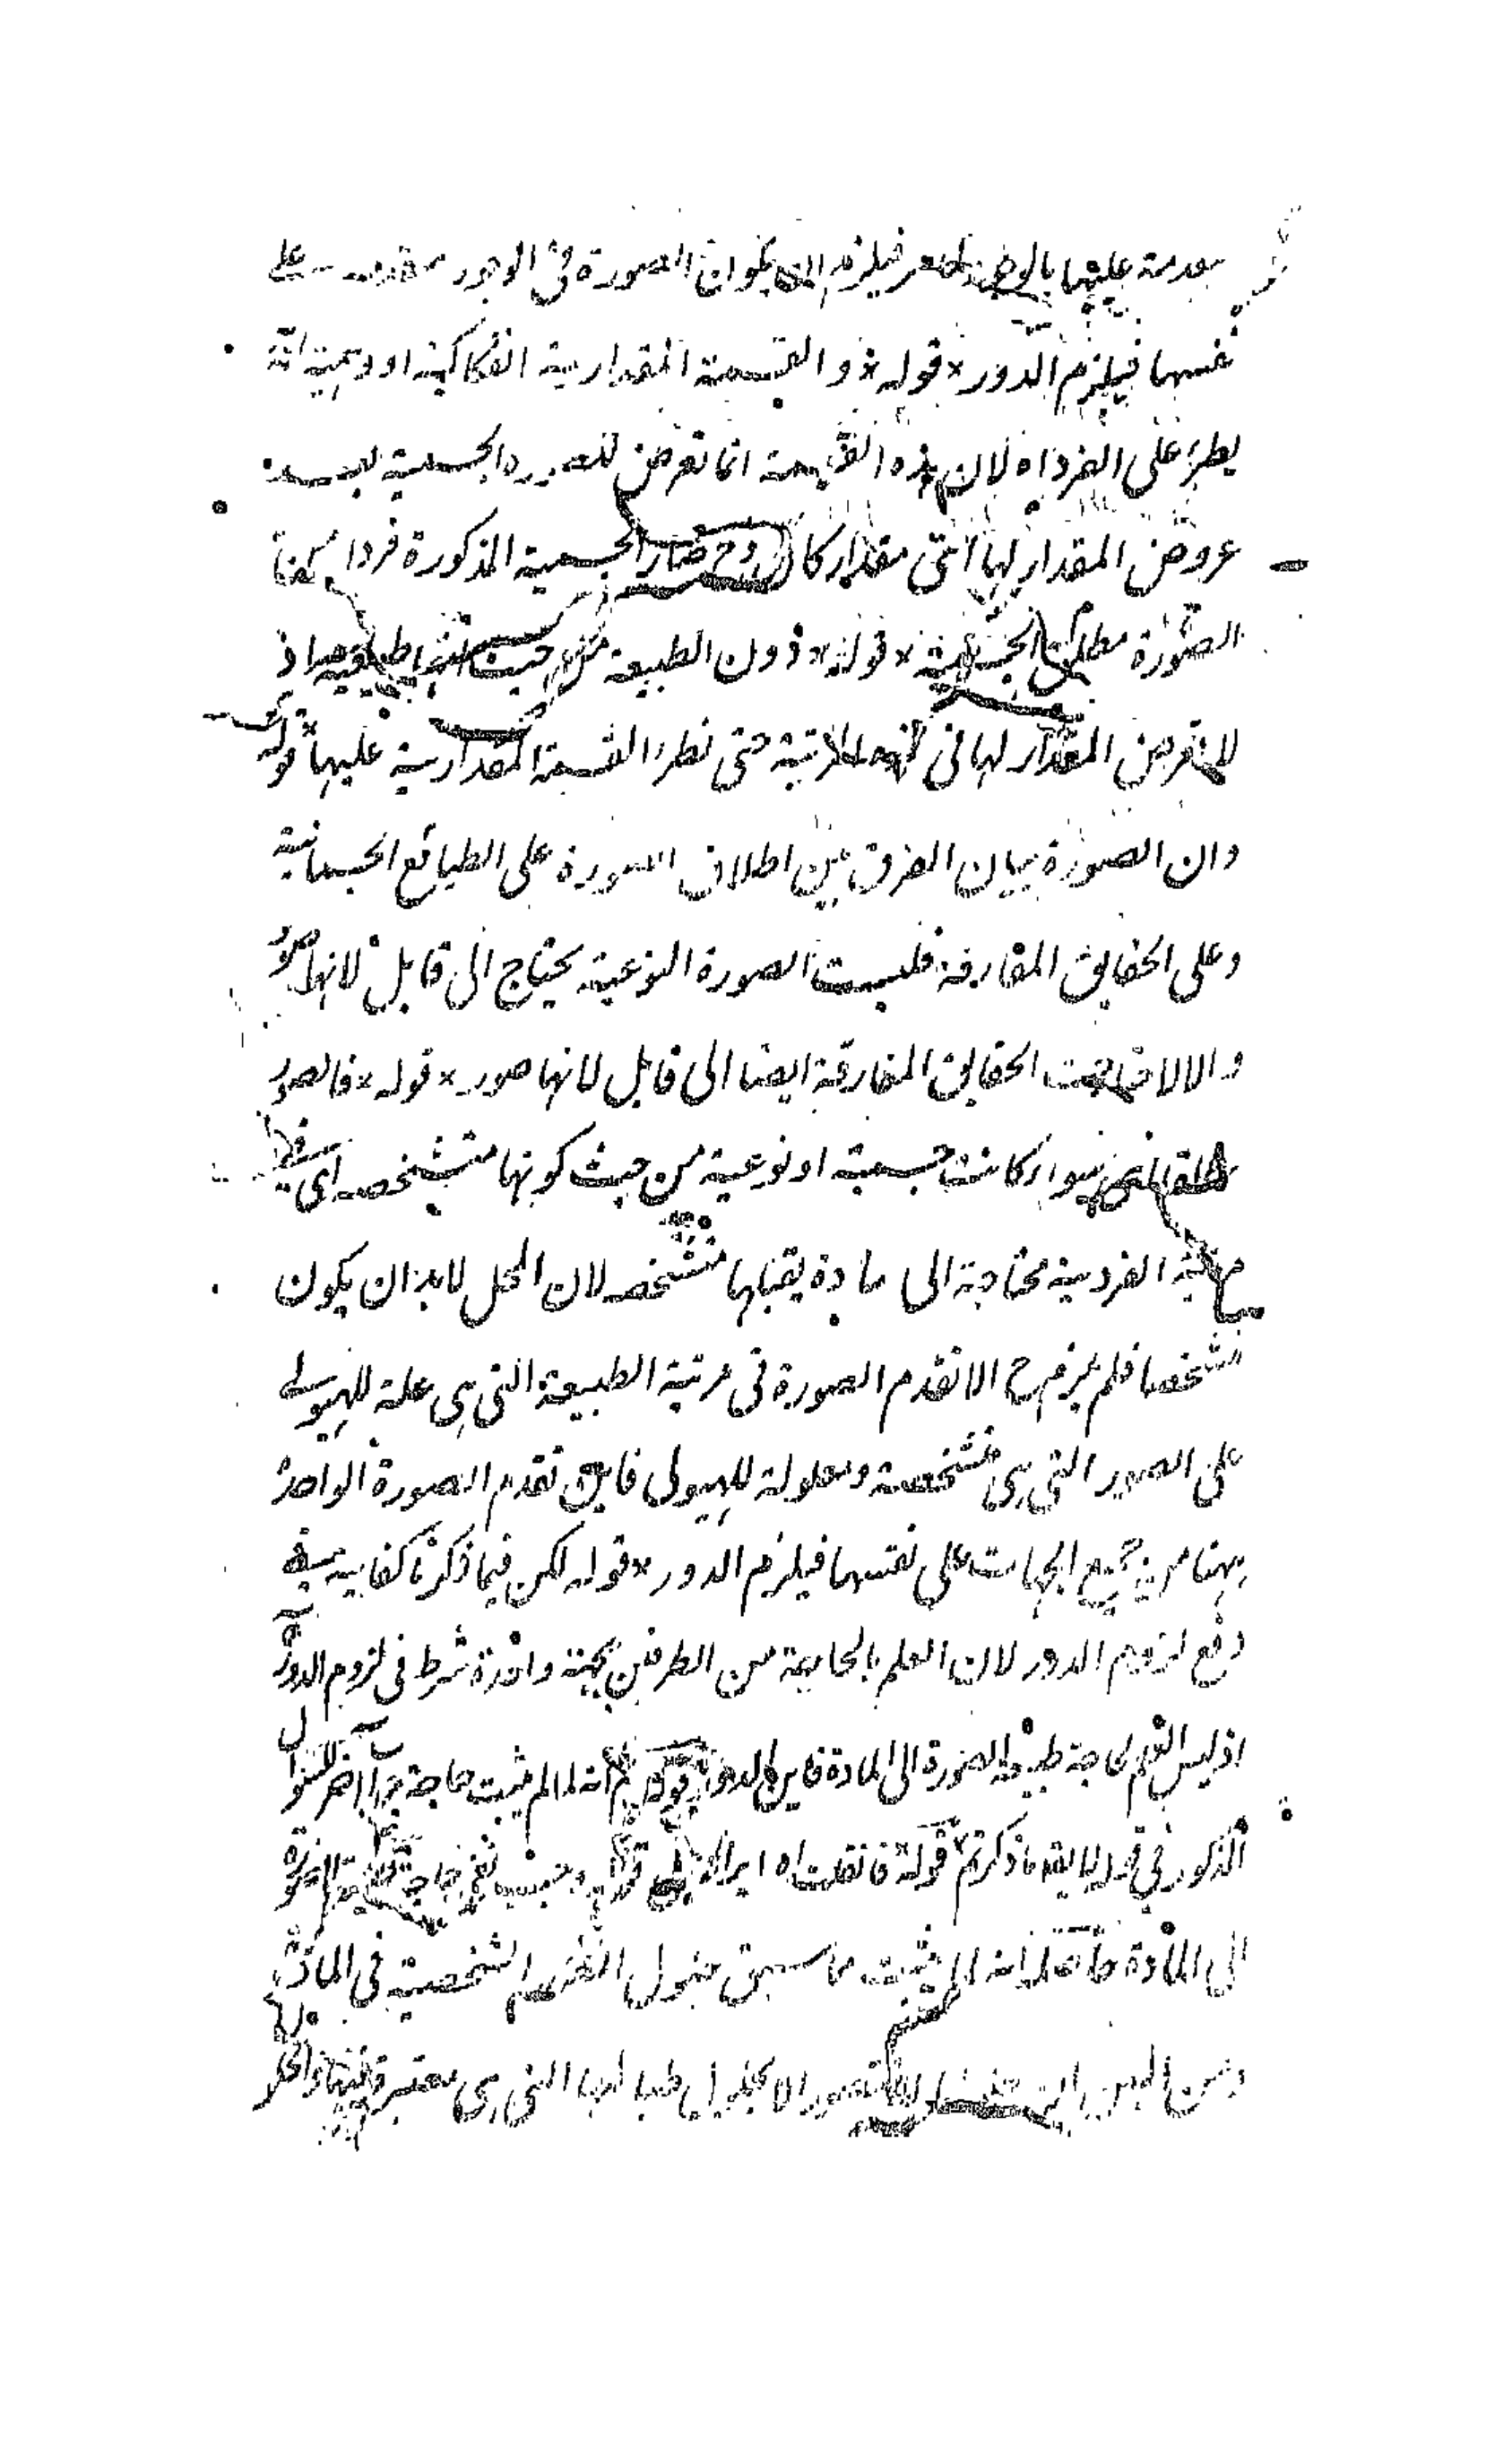 مقدمة عليها فيلزم ان يكون الصورة في الوجود مقدمة على
نفسها فيلزم الدور * قوله * و القسمة المقدارية انفكاكية او وهمية انما
يطرأ على الفرد اه لان هذه القسمة انما تعرض للصورة الجسمية بسبب
عروض المقدار لها اي مقدار كان وح صار الجسمية المذكورة فردا
الصورة مطلق الجسمية * قوله * دون الطبيعة من حيث هي اذ
لا تعرض المقدار لها في هذه المرتبة حتى تطرأ القسمة المقدارية عليها * قوله
وان الصورة بيان الفرق بين اطلاق الصورة على الطبائع الجسمانية
وعلى الحقايق المفارقة فليست الصورة النوعية يحتاج الى قابل لانها صور
والا لاحتاجت الحقايق المفارقة ايضا الى قابل لانها صور * قوله * فالصور
سواء كانت جسمية او نوعية من حيث كونها متشخصه اى في
مرتبة الفردية محتاجة الى مادة يقبلها متشخصه لان المحل لا بد ان يكون
متشخصا فلم يلزم ح الا تقدم الصورة في مرتبة الطبيعة التي هي علة للهيولى
على الصور التي هي متشخصة ومعلولة للهيولى فاين تقدم الصورة الواحدة
ههنا من جميع الجهات على نفسها فيلزم الدور * قوله لكن فيما ذكرنا كفاية في
دفع لزوم الدور لان العلم بالحاجة من الطرفين بجهة واحدة شرط في لزوم الدور
اذ ليس العلم بحاجة طبيعة الصورة الى المادة فاين الدور قوله ثم انه لما لم يثبت حاجة جواب اخر للسؤال
المذكور في قوله لا يقال ما ذكرتم * قوله * فان قلت اه ايراد على قوله حاجة الصورة
الى المادة لانه لم يثبت مما سبق حلول الصورة الشخصية في المادة
ومن البين ان لا يتصور الا بحلول طبايعها التي هي معتبرة فيها